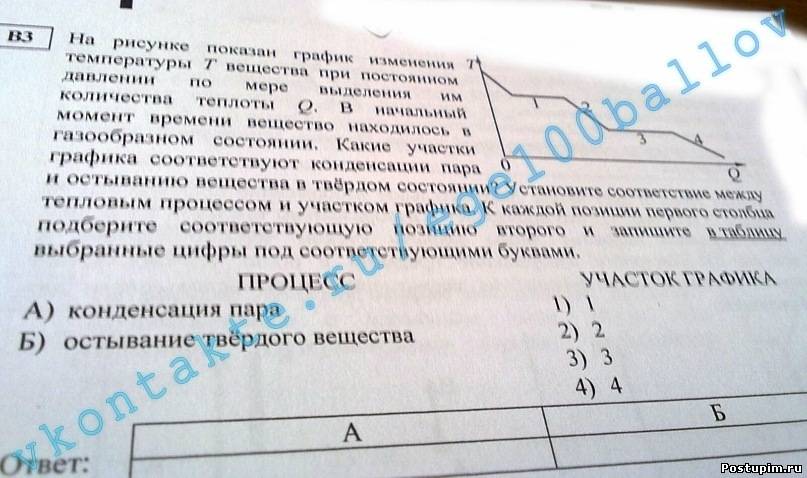 В3
На рисунке показан график изменения
температуры T вещества при постоянном
давлении по мере выделения им
количества теплоты Q. В начальный
момент времени вещество находилось в
газообразном состоянии. Какие участки
графика соответствуют конденсации пара
и остыванию вещества в твёрдом состоянии? Установите соответствие между
тепловым процессом и участком графика. К каждой позиции первого столбца
подберите соответствующую позицию второго и запишите в таблицу
выбранные цифры под соответствующими буквами.
T
1
2
3
4
0
Q
ПРОЦЕСС
А) конденсация пара
Б) остывание твёрдого вещества
УЧАСТОК ГРАФИКА
1) 1
2) 2
3) 3
4) 4
А Б
Ответ:
vkontakte.ru/ege100ballov
Postupim.ru